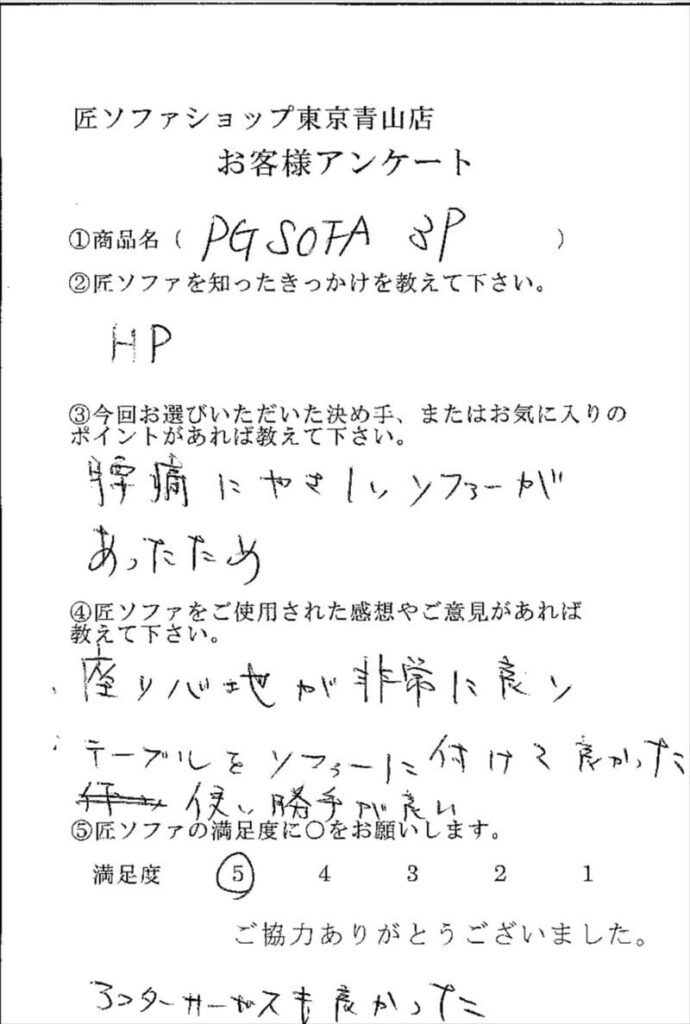 匠ソファショップ東京青山店
お客様アンケート
①商品名（ PG SOFA 3P ）
②匠ソファを知ったきっかけを教えて下さい。
HP
③今回お選びいただいた決め手、またはお気に入りの
ポイントがあれば教えて下さい。
腰痛にやさしいソファーが
あったため
④匠ソファをご使用された感想やご意見があれば
教えて下さい。
座り心地が非常に良い
テーブルをソファーに付けて良かった
使い勝手が良い
⑤匠ソファの満足度に〇をお願いします。
満足度 5 4 3 2 1
ご協力ありがとうございました。
アフターサービスも良かった